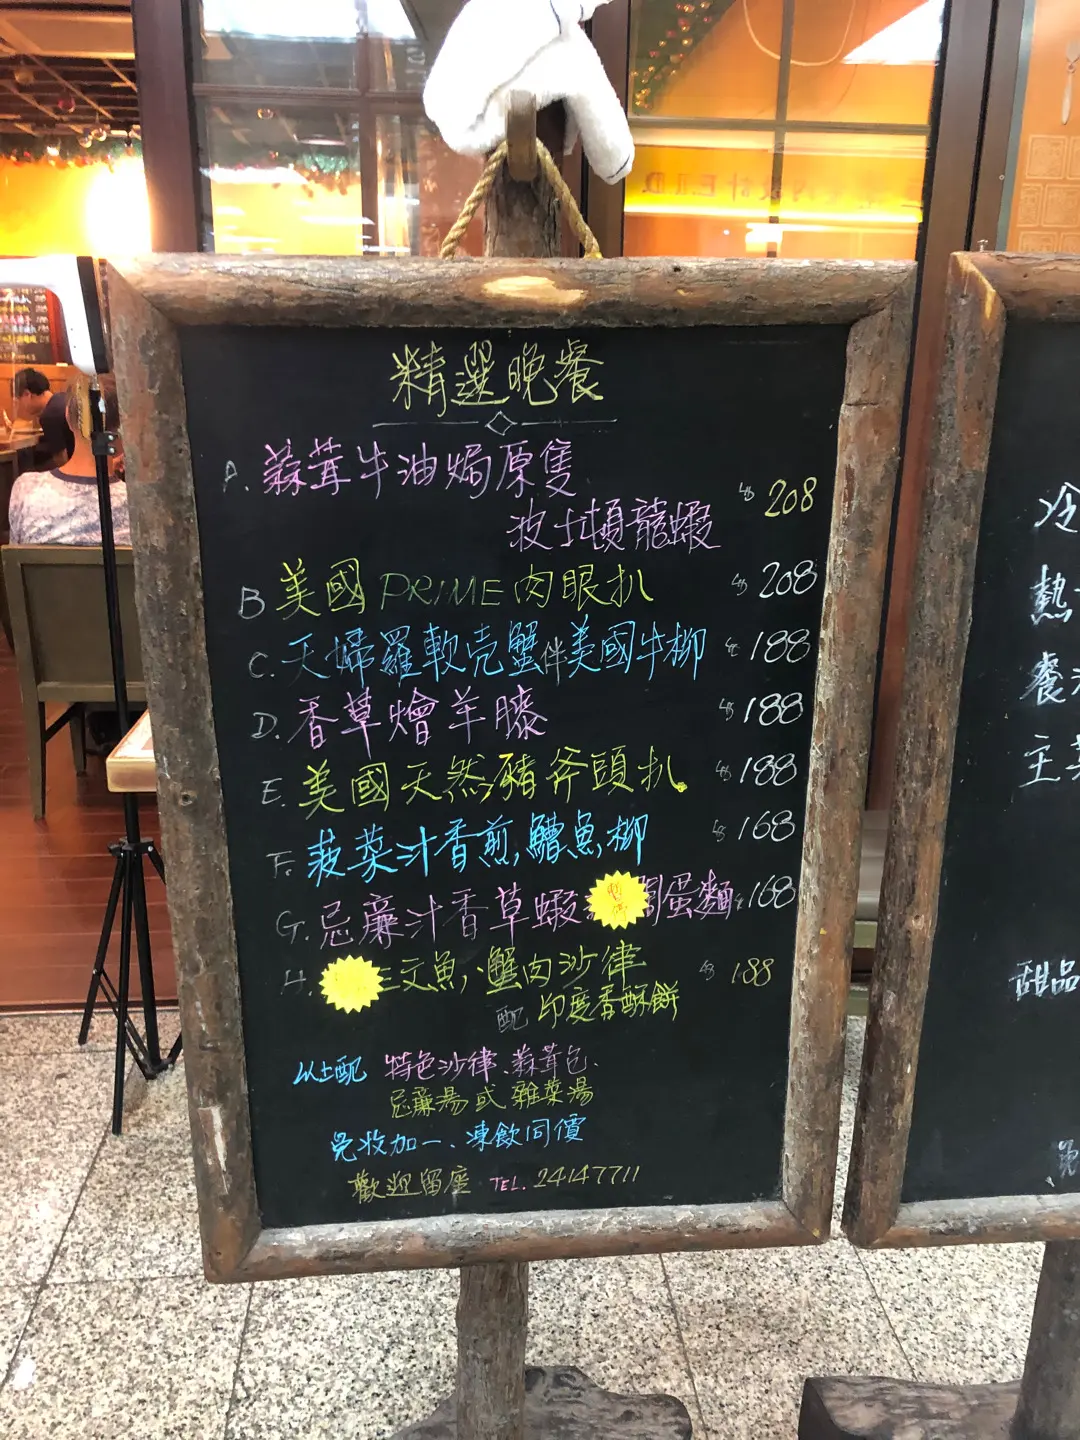 精選晚餐
A. 蒜茸牛油焗原隻
波士頓龍蝦 $208
B 美國PRIME肉眼扒 $208
C. 天婦羅軟壳蟹伴美國牛柳 $188
D. 香草燴羊膝 $188
E. 美國天然豬斧頭扒 $188
F. 菠菜汁香煎鱈魚柳 $168
G. 忌廉汁香草蝦 蛋麵 $168
暫停
H. 三文魚、蟹肉沙律 $188
配 印度香酥餅
以上配 特色沙律、蒜茸包、
忌廉湯或雜菜湯
免收加一、凍飲同價
歡迎留座 TEL. 24147711
冷
熱
餐
主
甜品
免